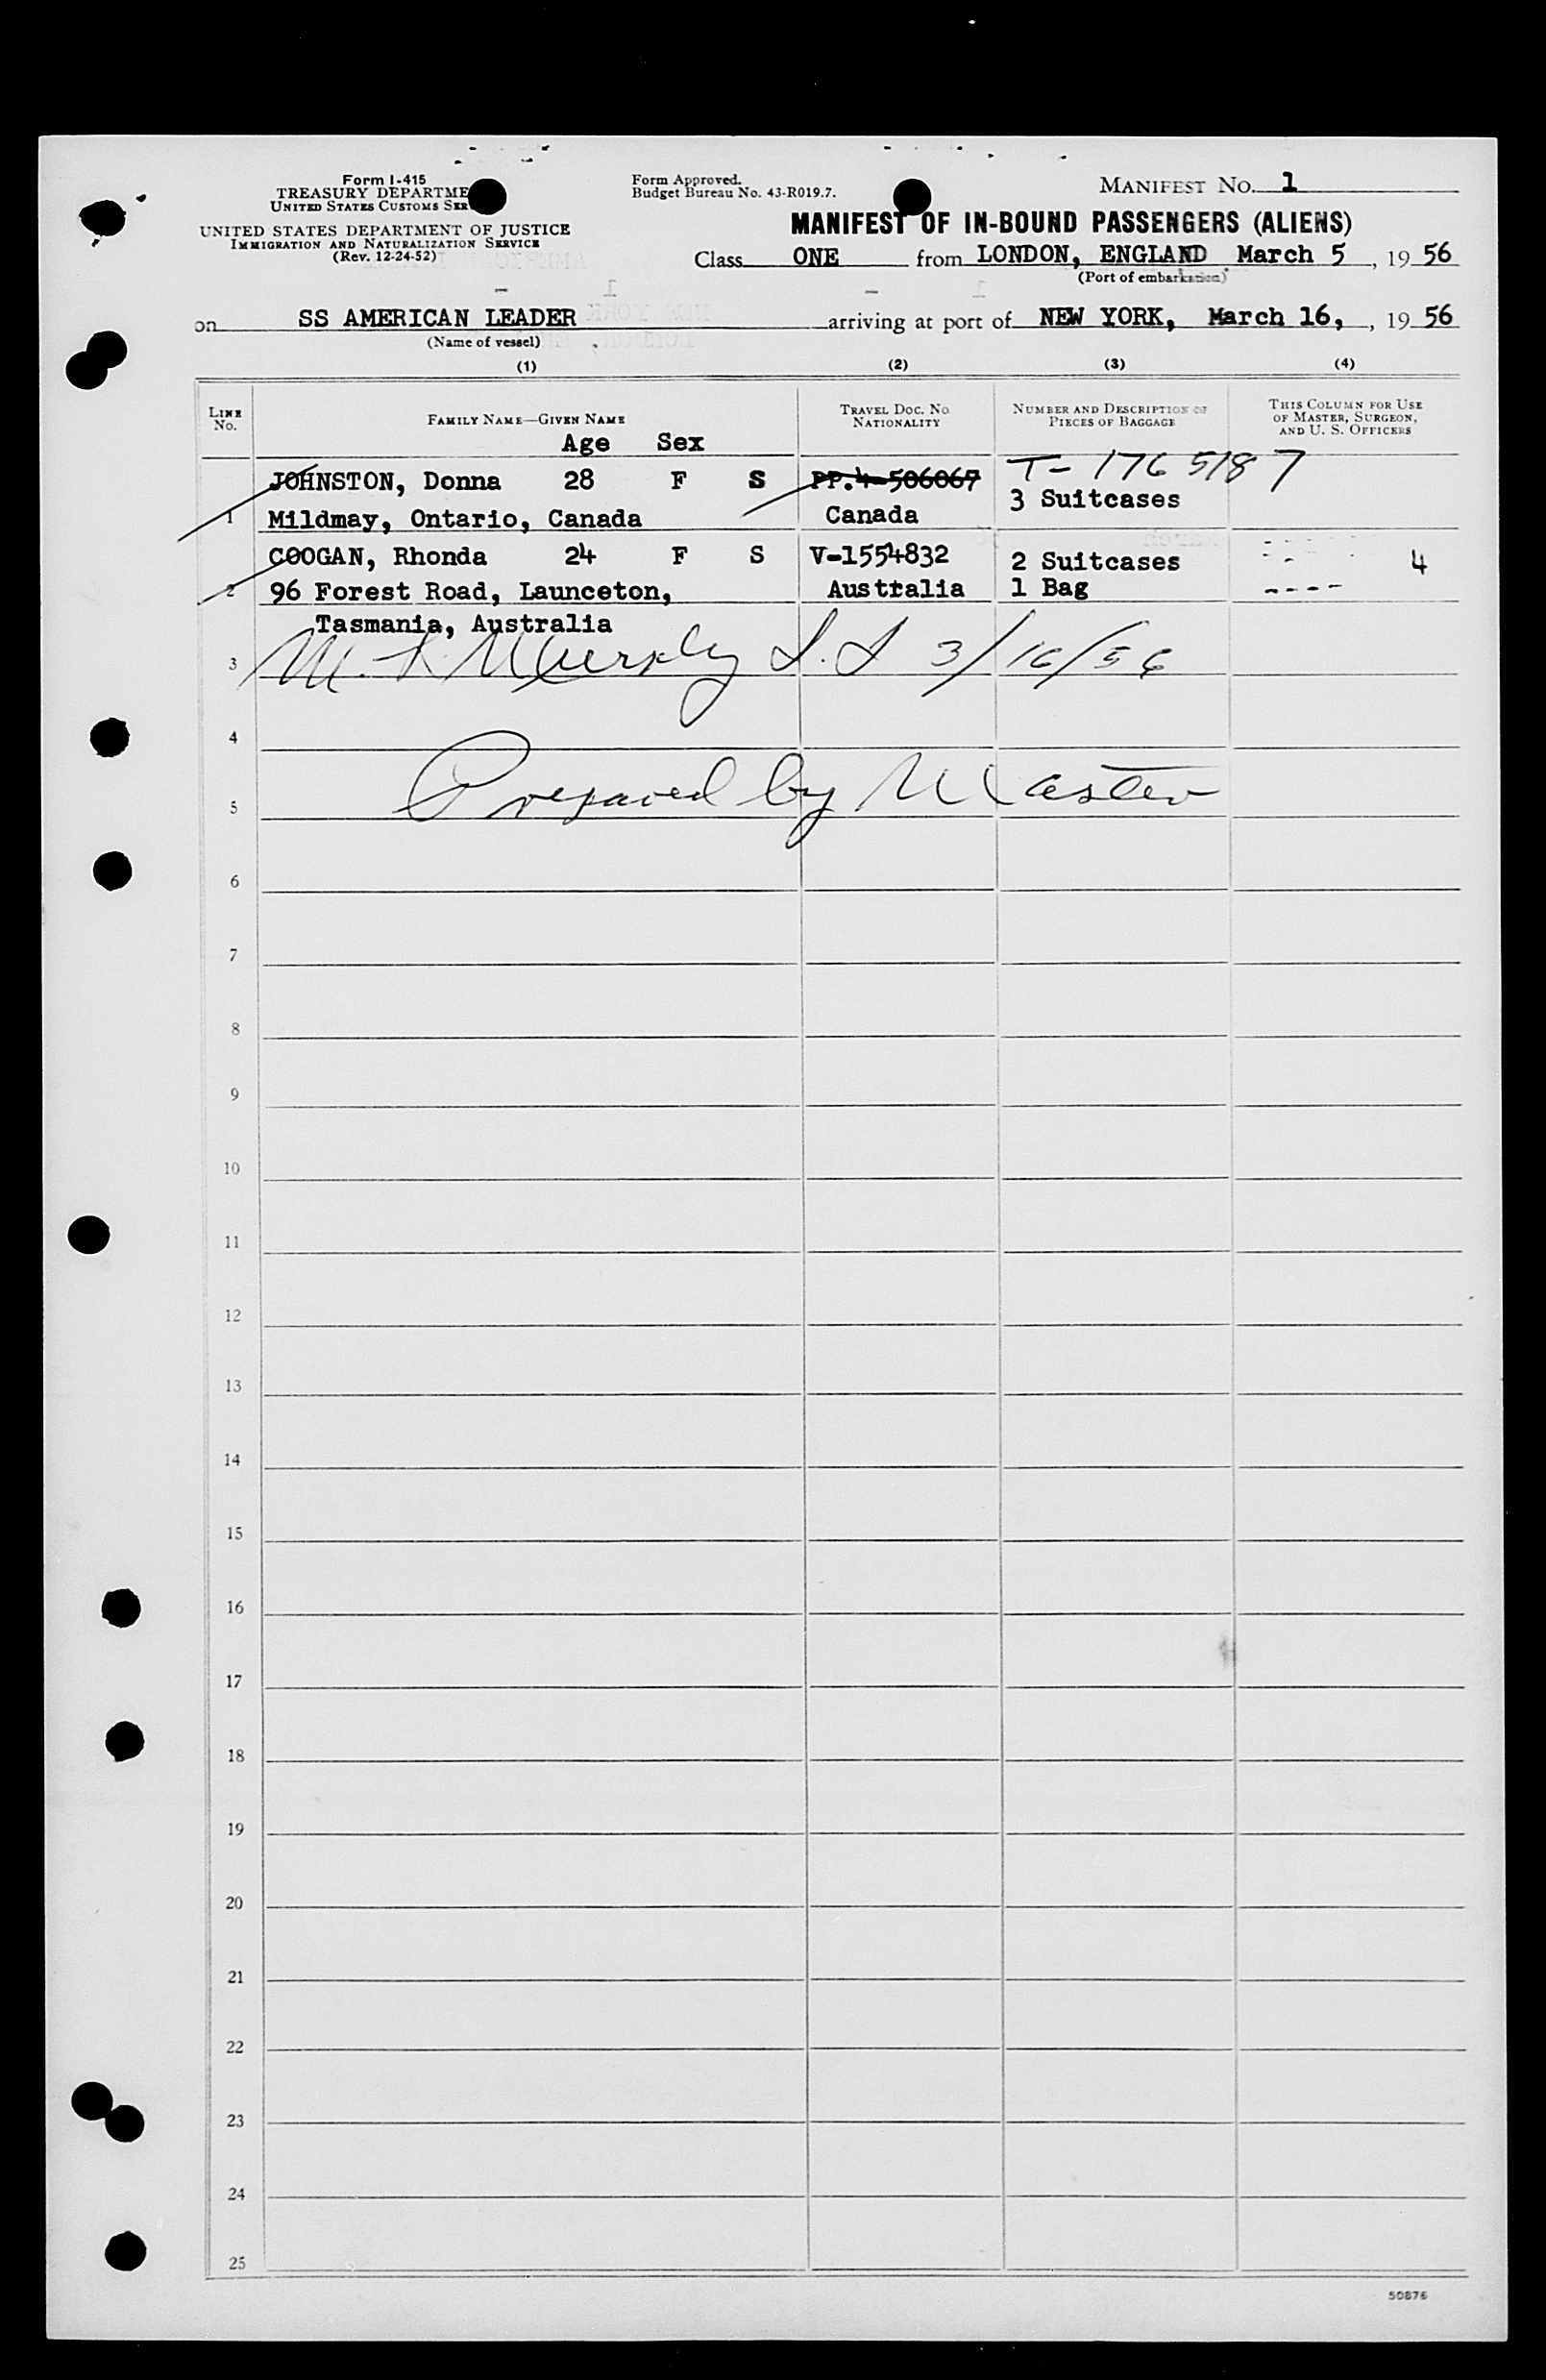 Form I-415
TREASURY DEPARTME
UNITED STATES CUSTOMS SER
UNITED STATES DEPARTMENT OF JUSTICE
IMMIGRATION AND NATURALIZATION SERVICE
(Rev. 12-24-52)
Form Approved.
Budget Bureau No. 43-R019.7.
MANIFEST NO. 1
MANIFEST OF IN-BOUND PASSENGERS (ALIENS)
Class ONE from LONDON, ENGLAND March 5, 19 56
(Port of embarkation)
on SS AMERICAN LEADER arriving at port of NEW YORK, March 16, , 19 56
(Name of vessel)
(1) (2) (3) (4)
LINE No. FAMILY NAME—GIVEN NAME TRAVEL DOC. NO. NATIONALITY NUMBER AND DESCRIPTION OF PIECES OF BAGGAGE THIS COLUMN FOR USE OF MASTER, SURGEON, AND U. S. OFFICERS
Age Sex
T-1765187
JOHNSTON, Donna 28 F S PP.4-506067 3 Suitcases
1 Mildmay, Ontario, Canada Canada
COOGAN, Rhonda 24 F S V-1554832 2 Suitcases 4
2 96 Forest Road, Launceton, Austtalia 1 Bag
Tasmania, Australia
3 M. K Murphy 3/16/56
4
Prepared by Master
5
6
7
8
9
10
11
12
13
14
15
16
17
18
19
20
21
22
23
24
25
50876